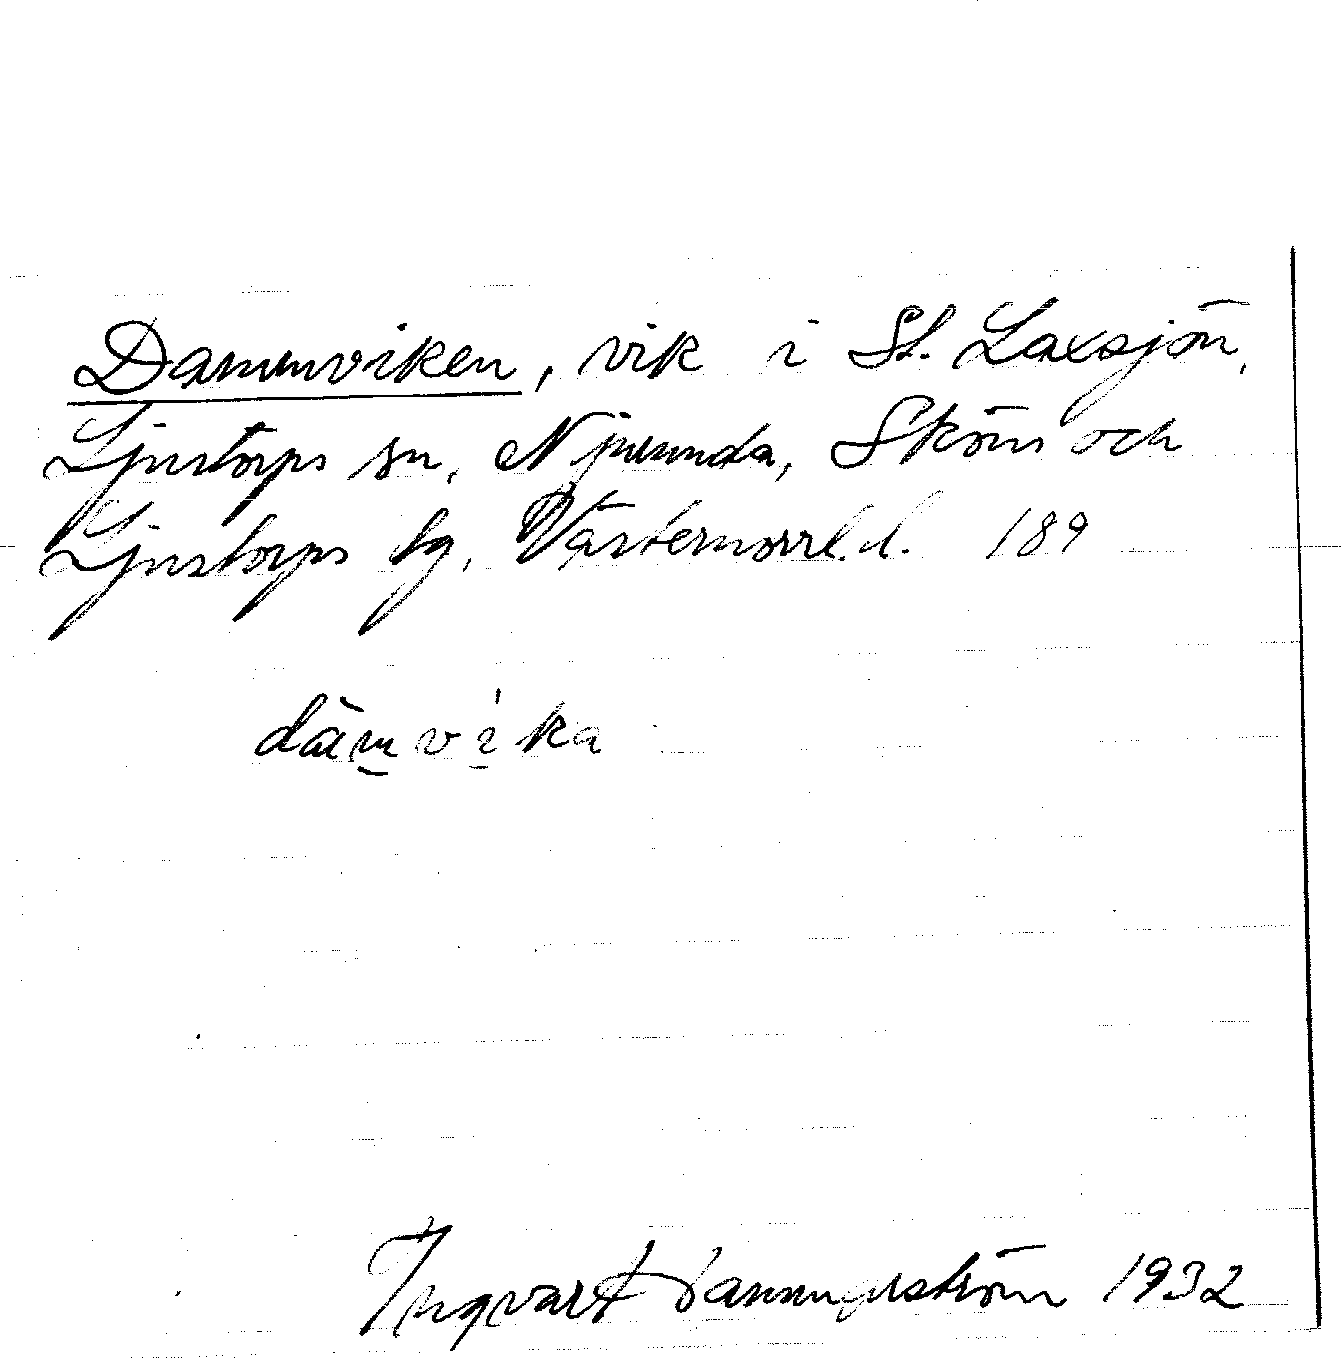 Dammviken, vik i St. Laxsjön,
Ljustorps sn, Njurunda, Sköns och
Ljustorps tg, Västernorrl. l. 189
dämvika
Ingvart 1932